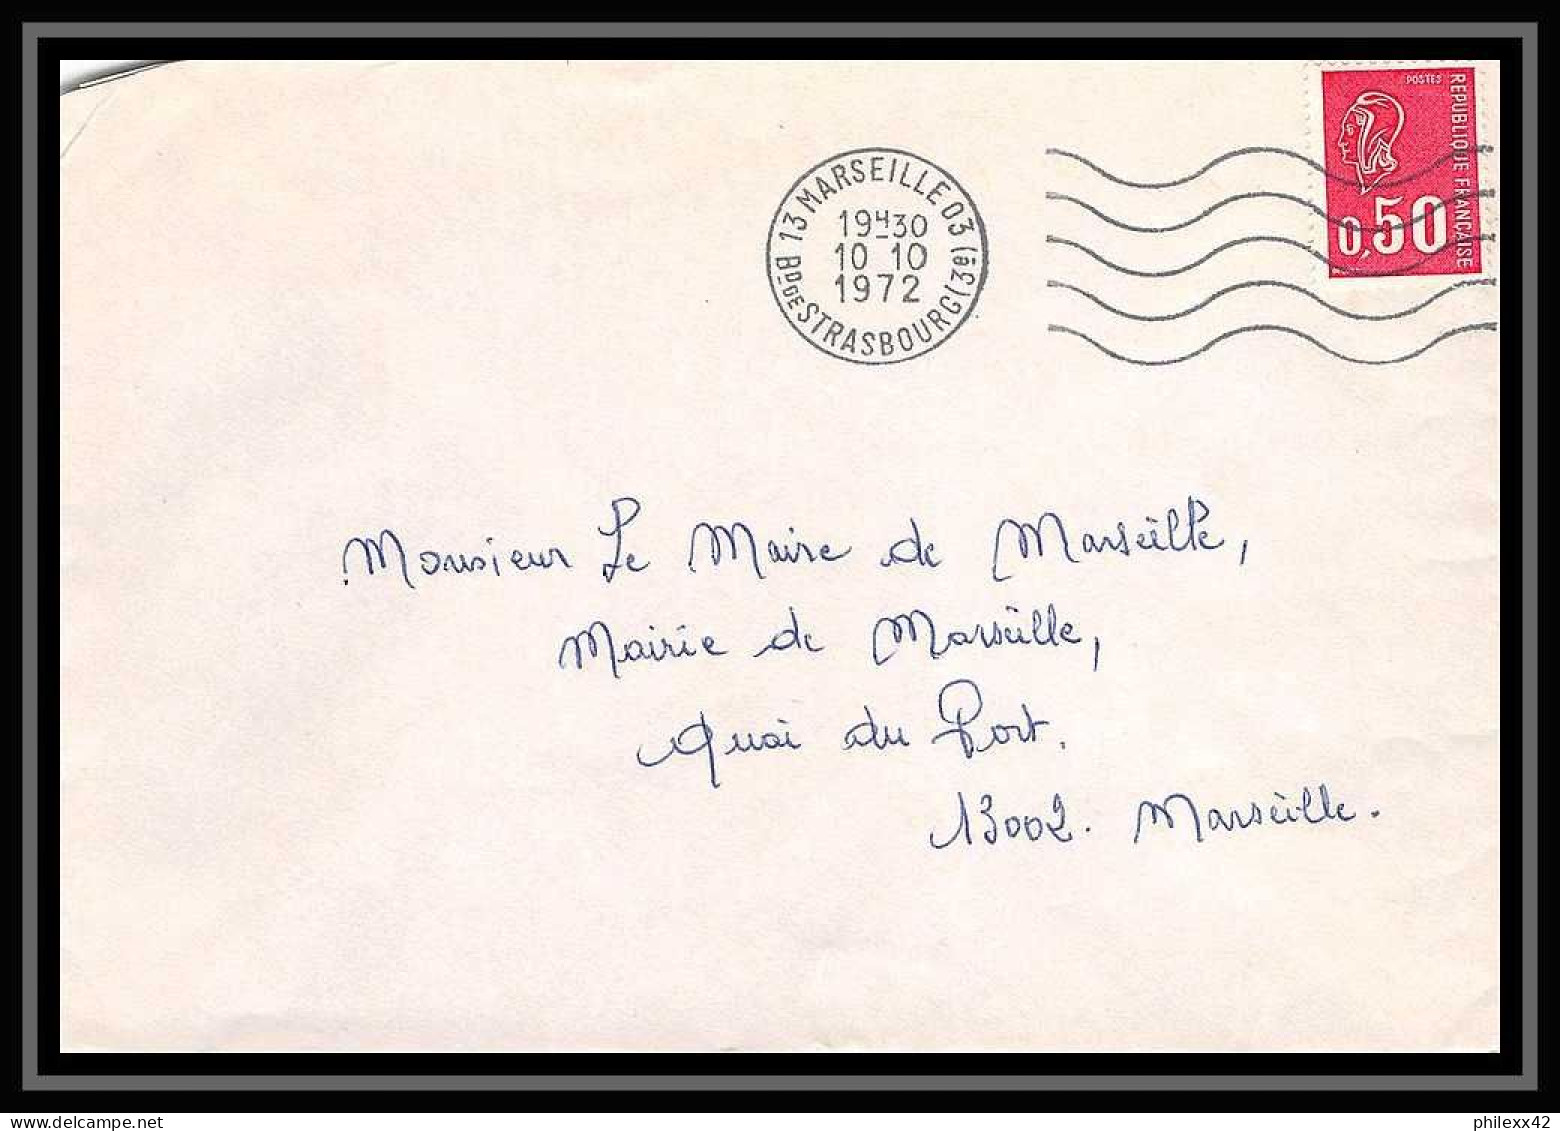 POSTES
REPUBLIQUE FRANÇAISE
0,50
13 MARSEILLE 03 (3e)
19H30
10 10
1972
BD DE STRASBOURG
Monsieur Le Maire de Marseille,
Mairie de Marseille,
Quai du Port.
13002. Marseille.
www.delcampe.net
philexx42